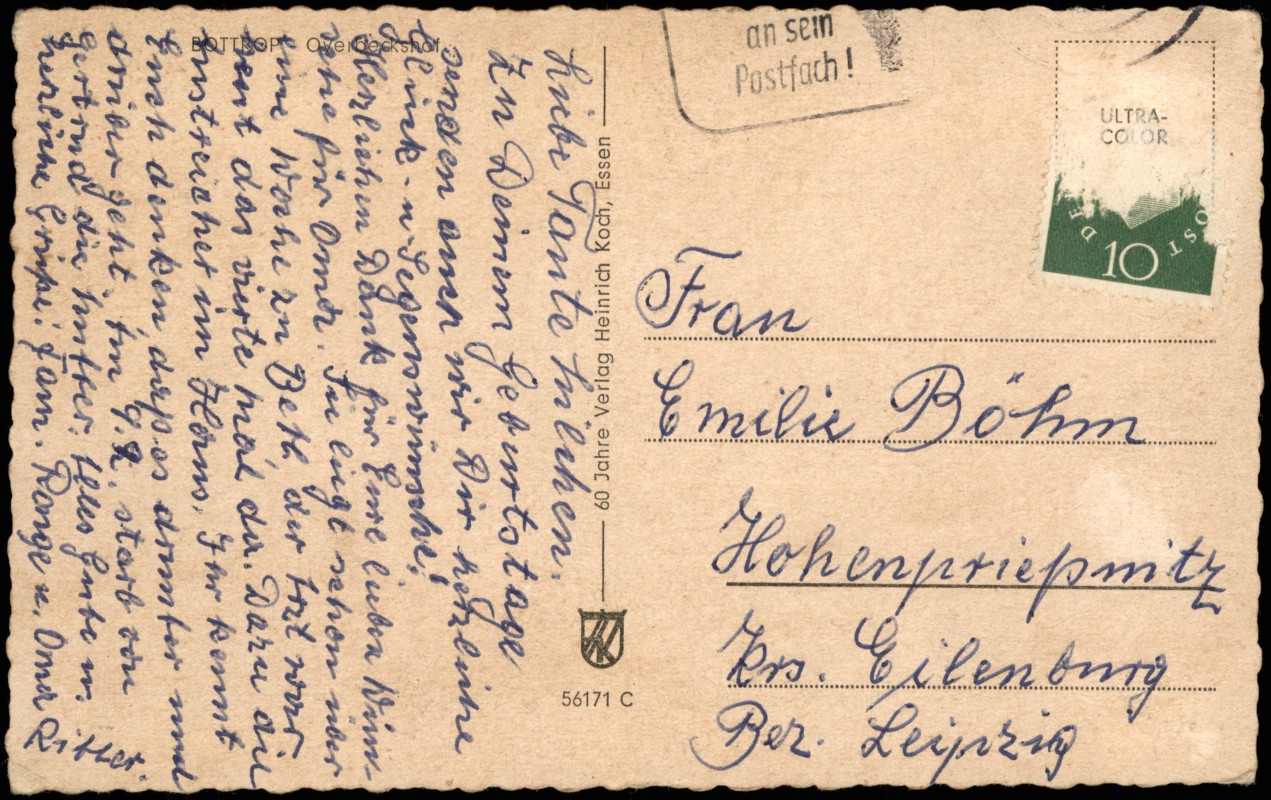 BOTTROP, Overbeckshof
Liebe Tante Milchen.
Zu Deinem Geburtstage
senden auch wir Dir herzliche
Glück- u. Segenswünsche!
Herzlichen Dank für Eure lieben Wün-
sche für Oma. Sie liegt schon über
eine Woche zu Bett der Arzt war
heut das vierte mal da. Dazu die
Anstreicher im Haus. Ihr könnt
Euch denken, daß es drunter und
drüber geht. Am 9.2. starb von
Gertrud die Mutter. Alles Gute u.
herzliche Grüße! Fam. Range u. Oma Ritter.
60 Jahre Verlag Heinrich Koch, Essen
56171 C
an sein
Postfach!
ULTRA-
COLOR
DE
OST
10
Frau
Emilie Böhm
Hohenprießnitz
Krs. Eilenburg
Bez. Leipzig